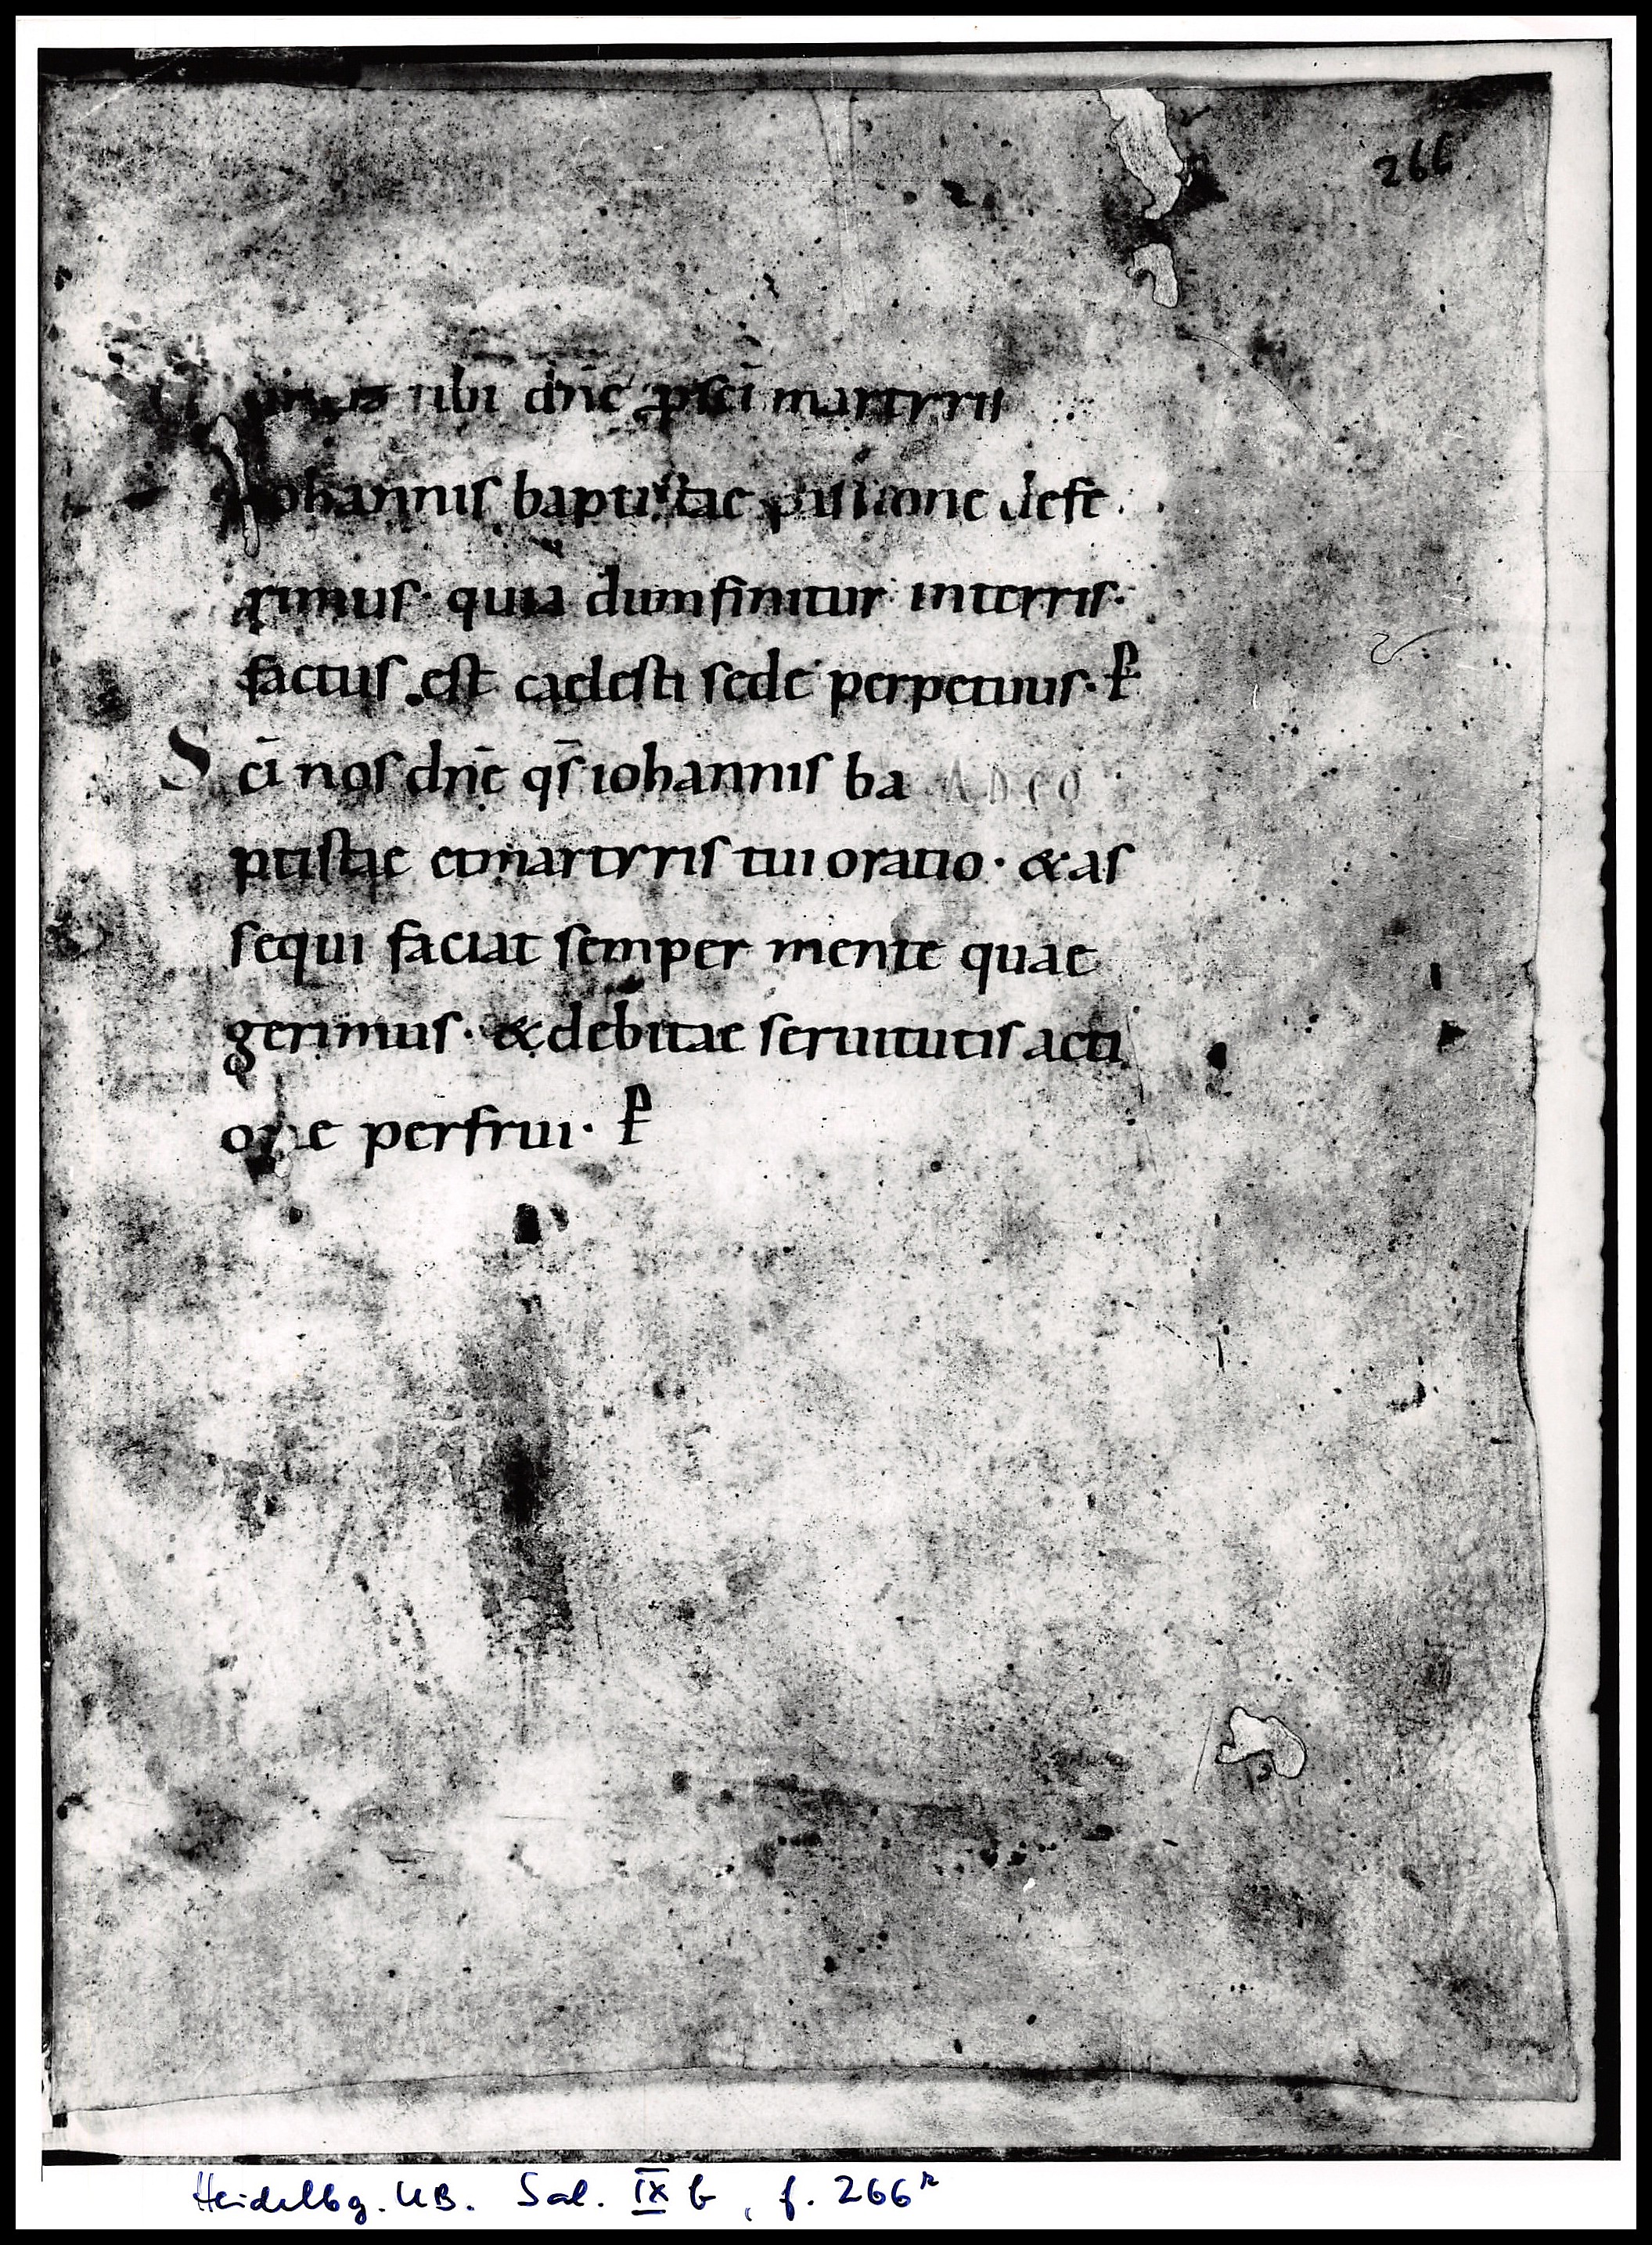 266
tibi dn̄e ꝓ sc̄i martyris
iohannis baptistae passione defe
rimus· quia dum finitur in terris·
factus est caelesti sede perpetuus· P
Sc̄i nos dn̄e qs̄ iohannis ba AD CO
ptistae et martyris tui oratio· & as
sequi faciat semper mente quae
gerimus· & debitae seruitutis acti
one perfrui· P
Heidelbg. UB. Sal. IX b, f. 266r